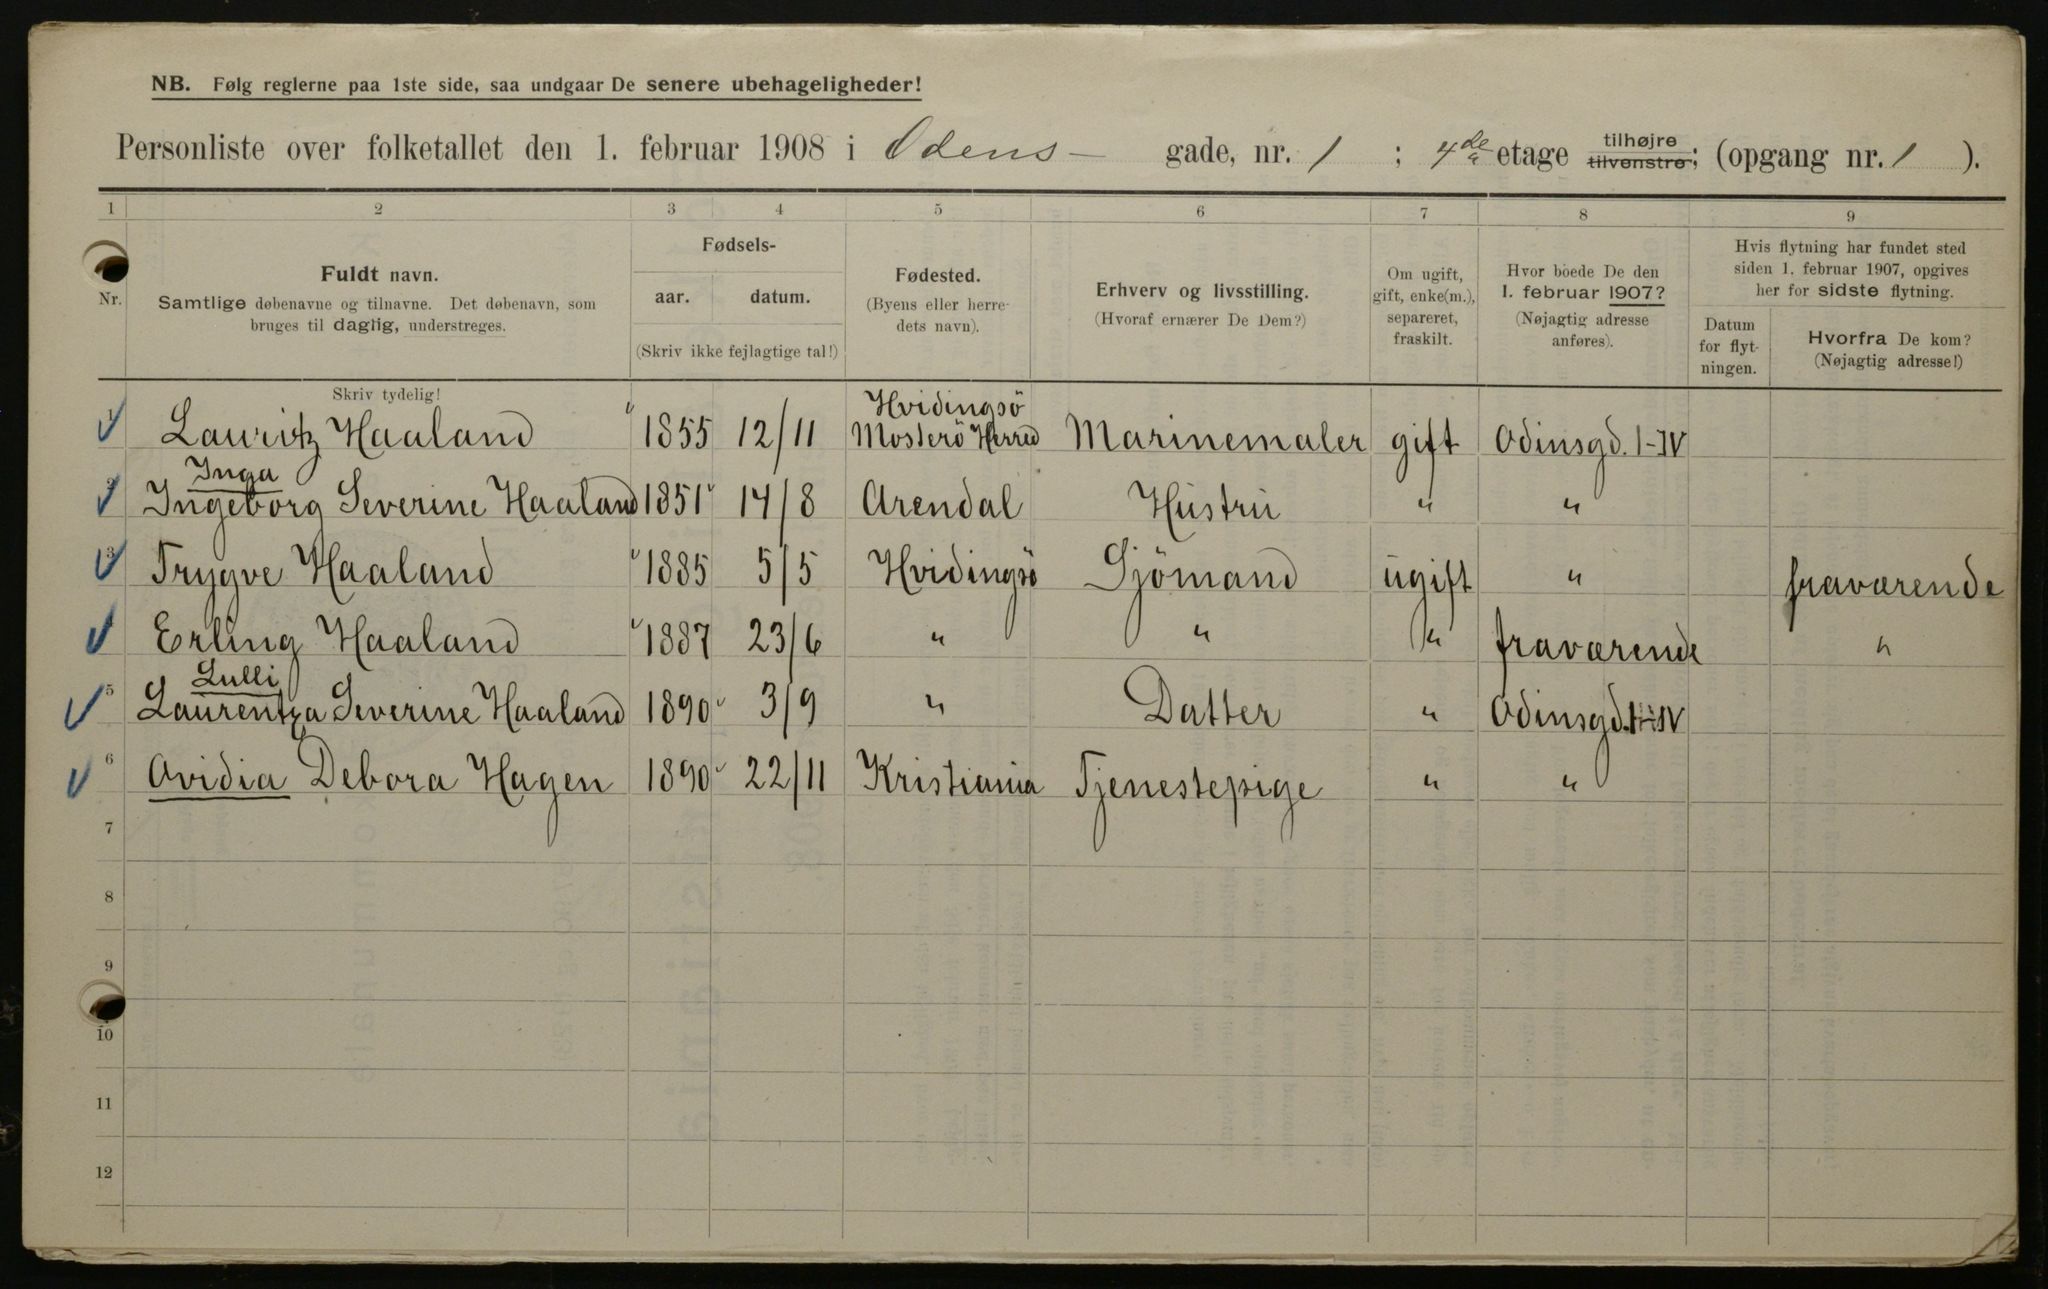 NB. Følg reglerne paa 1ste side, saa undgaar De senere ubehageligheder!
Personliste over folketallet den 1. februar 1908 i Odens- gade, nr. 1 ; 4de etage tilhøjre tilvenstre; (opgang nr. 1 ).
1 2 3 4 5 6 7 8 9
Nr.
Fuldt navn.
Samtlige døbenavne og tilnavne. Det døbenavn, som
bruges til daglig, understreges.
Fødsels-
aar. datum.
(Skriv ikke fejlagtige tal!)
Fødested.
(Byens eller herre-
dets navn).
Erhverv og livsstilling.
(Hvoraf ernærer De Dem?)
Om ugift,
gift, enke(m.),
separeret,
fraskilt.
Hvor boede De den
1. februar 1907?
(Nøjagtig adresse
anføres).
Hvis flytning har fundet sted
siden 1. februar 1907, opgives
her for sidste flytning.
Datum
for flyt-
ningen.
Hvorfra De kom?
(Nøjagtig adresse!)
Skriv tydelig!
Hvidingsö
1 Lauritz Haaland 1855 12/11 Mosterö Herred Marinemaler gift Odinsgd. 1-IV
Inga
2 Ingeborg Severine Haaland 1851 14/8 Arendal Hustru " "
3 Trygve Haaland 1885 5/5 Hvidingsö Sjömand ugift " fraværende
Erling Haaland 1887 23/6 " " " fraværende "
Lulli
5 Laurentza Severine Haaland 1890 3/9 " Datter " Odinsgd. 1-IV
6 Ovidia Debora Hagen 1890 22/11 Kristiania Tjenestepige " "
7
8
9
10
11
12